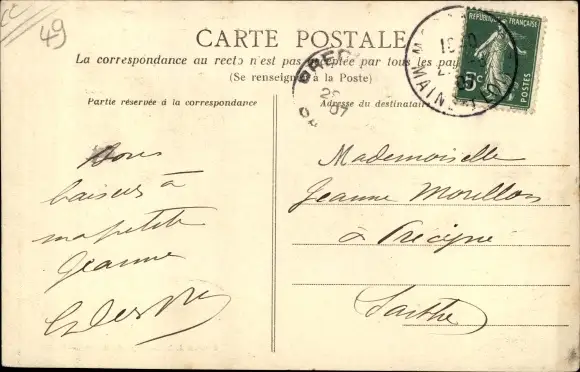 CC
49
CARTE POSTALE
La correspondance au recto n'est pas acceptée par tous les pay
(Se renseigner à la Poste)
Partie réservée à la correspondance
Adresse du destinatai
RÉPUBLIQUE FRANÇAISE
5c
POSTES
07
Bons
baisers à
ma petite
Jeanne
Mademoiselle
Jeanne Mouillon
à Précigné
Sarthe